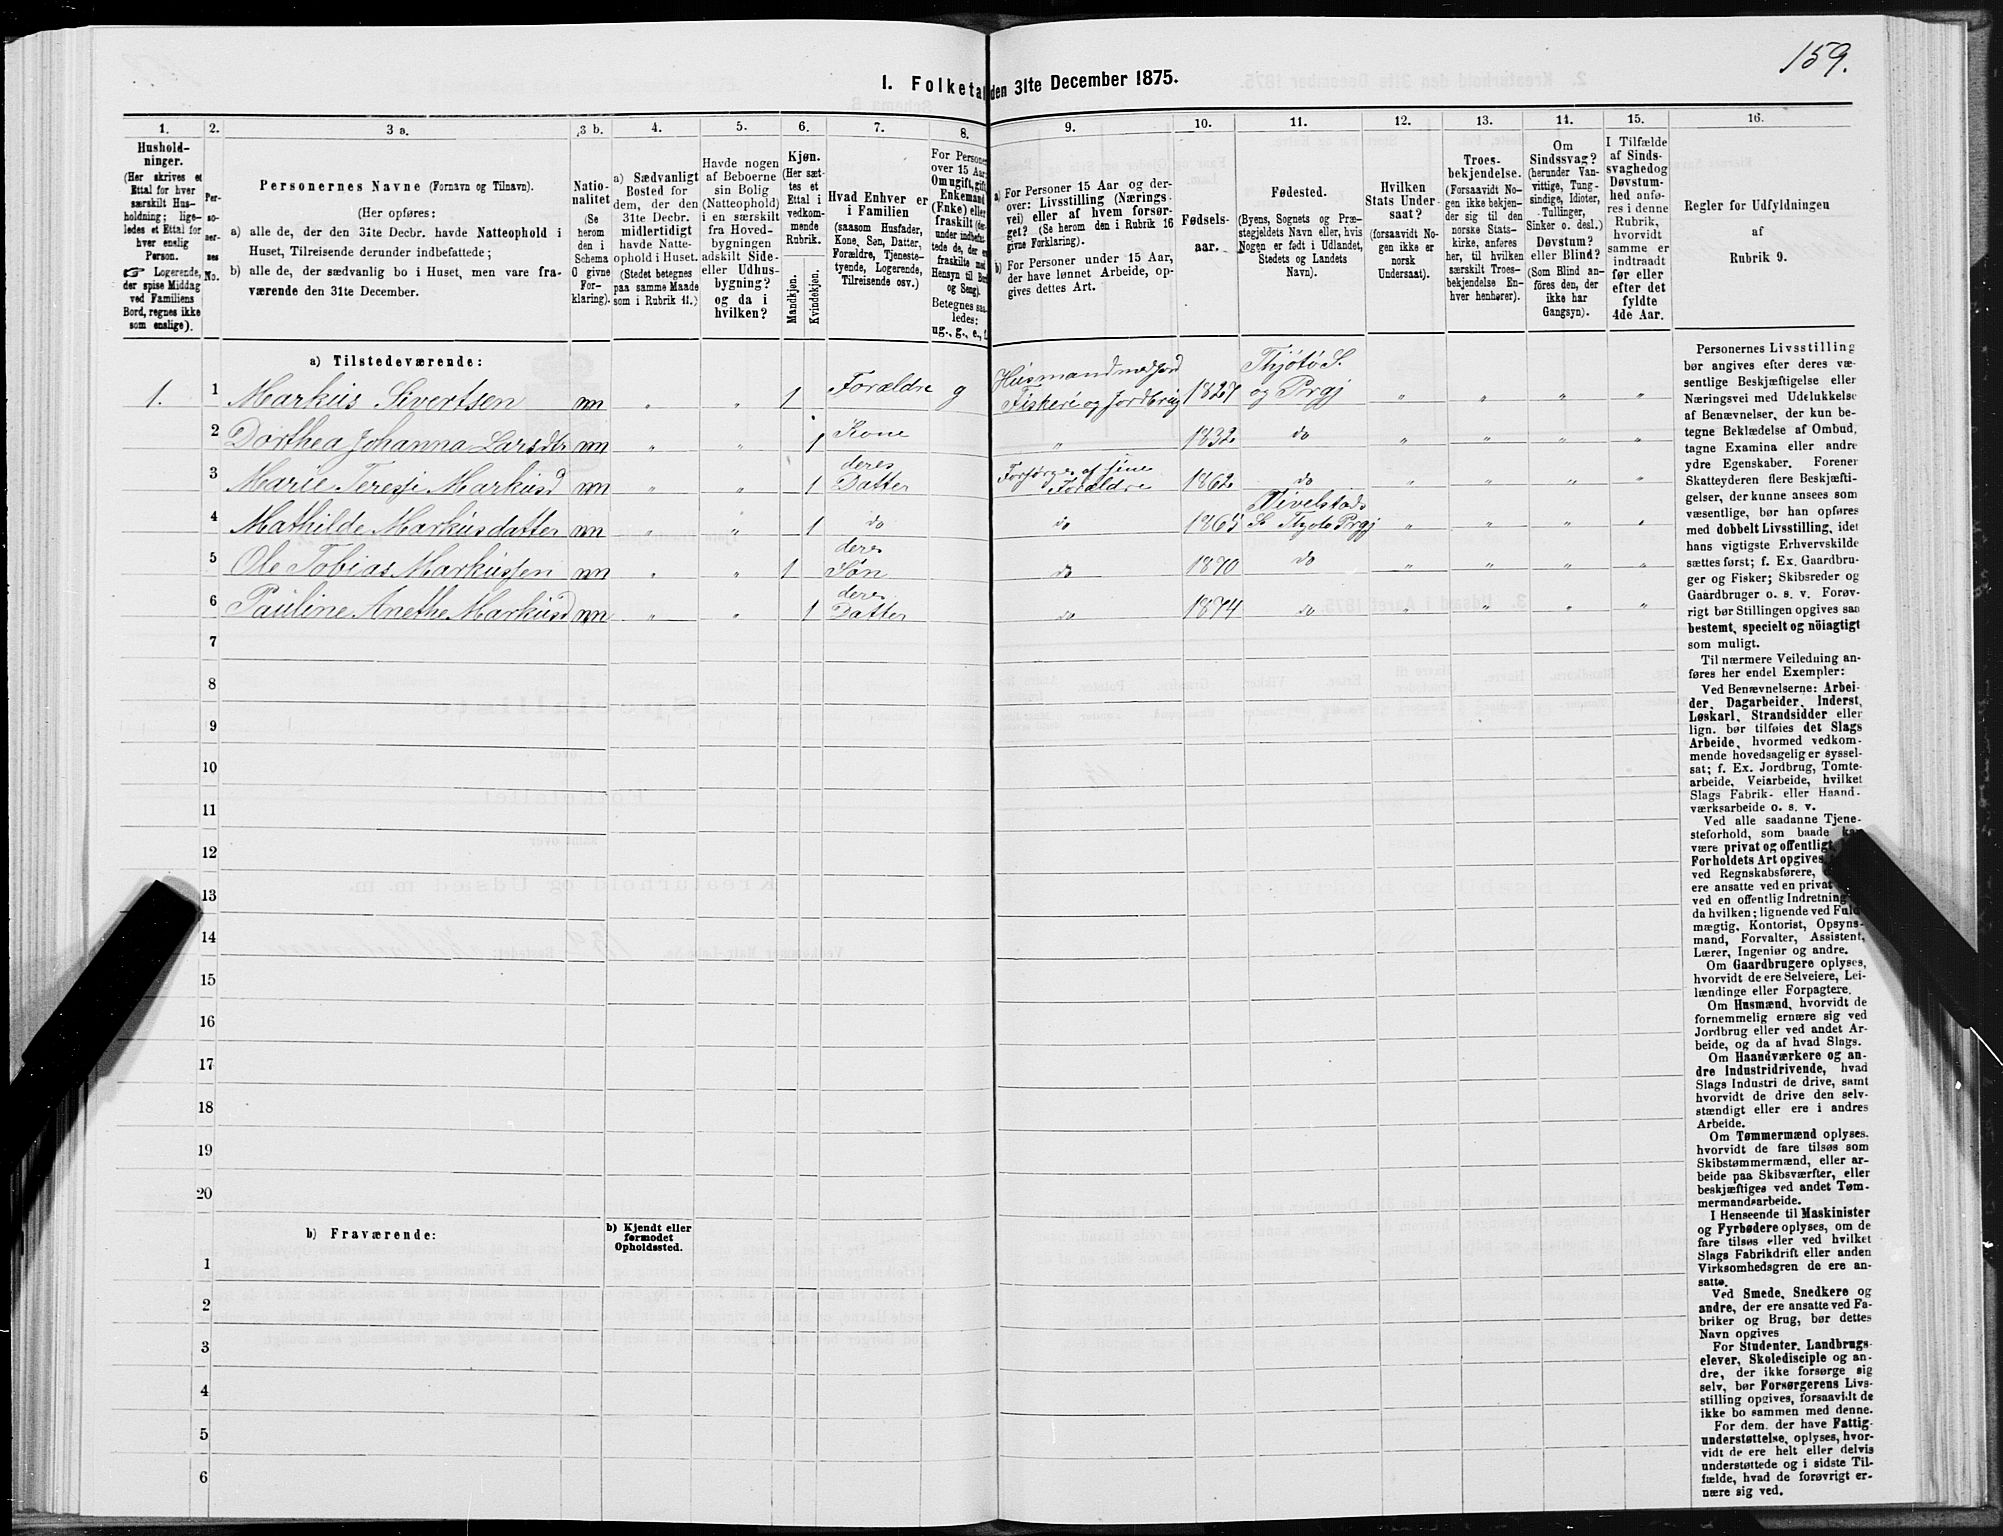 159.
I. Folketal den 31te December 1875.
1.
Hushold-
ninger.
(Her skrives et
Ettal for hver
særskilt Hus-
holdning; lige-
ledes et Ettal for
hver enslig
Person.
☞ Logerende,
der spise Middag
ved Familiens
Bord, regnes ikke
som enslige).
2.
Per-
so-
ner-
nes
No.
3 a.
Personernes Navne (Fornavn og Tilnavn).
(Her opføres:
a) alle de, der den 31te Decbr. havde Natteophold i
Huset, Tilreisende derunder indbefattede;
b) alle de, der sædvanlig bo i Huset, men vare fra-
værende den 31te December.
3 b.
Natio-
nalitet
(Se
herom
den i
Schema
O givne
For-
klaring).
4.
a) Sædvanligt
Bosted for
dem, der den
31te Decbr.
midlertidigt
havde Natte-
ophold i Huset.
(Stedet betegnes
paa samme Maade
som i Rubrik 11.)
5.
Havde nogen
af Beboerne
sin Bolig
(Natteophold)
i en særskilt
fra Hoved-
bygningen
adskilt Side-
eller Udhus-
bygning?
og da i
hvilken?
6.
Kjøn.
(Her sæt-
tes et
Ettal i
vedkom-
mende
Rubrik.
Mandkjøn.
Kvindekjøn.
7.
Hvad Enhver er
i Familien
(saasom Husfader,
Kone, Søn, Datter,
Forældre, Tjeneste-
tyende, Logerende,
Tilreisende osv.)
8.
For Personer
over 15 Aar:
Om ugift, gift,
Enkemand
(Enke) eller
fraskilt (der-
under indbefat-
tede de, der ere
fraskilte med
Hensyn til Bord
og Seng).
Betegnes saa-
ledes:
ug., g., e., f.
9.
a) For Personer 15 Aar og der-
over: Livsstilling (Nærings-
vei) eller af hvem forsør-
get? (Se herom den i Rubrik 16
givne Forklaring).
b) For Personer under 15 Aar,
der have lønnet Arbeide, op-
gives dettes Art.
10.
Fødsels-
aar.
11.
Fødested.
(Byens, Sognets og Præ-
stegjeldets Navn eller, hvis
Nogen er født i Udlandet,
Stedets og Landets
Navn).
12.
Hvilken
Stats Under-
saat?
(forsaavidt No-
gen ikke er
norsk
Undersaat).
13.
Troes-
bekjendelse.
(Forsaavidt No-
gen ikke bekjen-
der sig til den
norske Stats-
kirke, anføres
her, til hvilken
særskilt Troes-
bekjendelse En-
hver henhører).
14.
Om
Sindssvag?
(herunder Van-
vittige, Tung-
sindige, Idioter,
Tullinger,
Sinker o. desl.)
Døvstum?
eller Blind?
(Som Blind an-
føres den, der
ikke har
Gangsyn).
15.
I Tilfælde
af Sinds-
svaghed og
Døvstum-
hed anfø-
res i denne
Rubrik,
hvorvidt
samme er
indtraadt
før eller
efter det
fyldte
4de Aar.
16.
Regler for Udfyldningen
af
Rubrik 9.
a) Tilstedeværende:
1. 1 Markus Sivertsen nn " " 1 Forældre g Husmand med Jord Fiskeri og Jordbrug 1827 Thjøtø S. og Prgj " " " "
2 Dorthea Johanna Larsdtr nn " " 1 Kone " 1832 do " " " "
3 Marie Teresie Markusd nn " " 1 deres Datter Forsørges af sine Forældre 1862 do " " " "
4 Mathilde Markusdatter nn " " 1 do do 1865 Vivelstads S. Thjøtø Prgj " " " "
5 Ole Tobias Markussen nn " " 1 deres Søn do 1870 do " " " "
6 Pauline Anethe Markusd nn " " 1 deres Datter do 1874 do " " " "
7
8
9
10
11
12
13
14
15
16
17
18
19
20
b) Fraværende:
b) Kjendt eller
formodet
Opholdssted.
1
2
3
4
5
6
Personernes Livsstilling
bør angives efter deres væ-
sentlige Beskjæftigelse eller
Næringsvei med Udelukkelse
af Benævnelser, der kun be-
tegne Beklædelse af Ombud,
tagne Examina eller andre
ydre Egenskaber. Forener
Skatteyderen flere Beskjæfti-
gelser, der kunne ansees som
væsentlige, bør han opføres
med dobbelt Livsstilling, idet
hans vigtigste Erhvervskilde
sættes først; f. Ex. Gaardbru-
ger og Fisker; Skibsreder og
Gaardbruger o. s. v. Forøv-
rigt bør Stillingen opgives saa
bestemt, specielt og nöiagtigt
som muligt.
Til nærmere Veiledning an-
føres her endel Exempler:
Ved Benævnelserne: Arbei-
der, Dagarbeider, Inderst,
Løskarl, Strandsidder eller
lign. bør tilføies det Slags
Arbeide, hvormed vedkom-
mende hovedsagelig er syssel-
sat; f. Ex. Jordbrug, Tomte-
arbeide, Veiarbeide, hvilket
Slags Fabrik- eller Haand-
værksarbeide o. s. v.
Ved alle saadanne Tjene-
steforhold, som baade kan
være privat og offentligt
Forholdets Art opgives,
ved Regnskabsførere,
ere ansatte ved en privat
ved en offentlig Indretning
da hvilken; lignende ved Fuld-
mægtig, Kontorist, Opsyns-
mand, Forvalter, Assistent,
Lærer, Ingeniør og andre.
Om Gaardbrugere oplyses,
hvorvidt de ere Selveiere, Lei-
lændinge eller Forpagtere.
Om Husmænd, hvorvidt de
fornemmelig ernære sig ved
Jordbrug eller ved andet Ar-
beide, og da af hvad Slags.
Om Haandværkere og an-
dre Industridrivende, hvad
Slags Industri de drive, samt
hvorvidt de drive den selv-
stændigt eller ere i andres
Arbeide.
Om Tømmermænd oplyses.
hvorvidt de fare tilsøs som
Skibstømmermænd, eller ar-
beide paa Skibsværfter, eller
beskjæftiges ved andet Tøm-
mermandsarbeide.
I Henseende til Maskinister
og Fyrbødere oplyses, om de
fare tilsøs eller ved hvilket
Slags Fabrikdrift eller anden
Virksomhedsgren de ere an-
satte.
Ved Smede, Snedkere og
andre, der ere ansatte ved Fa-
briker og Brug, bør dettes
Navn opgives
For Studenter, Landbrugs-
elever, Skoledisciple og an-
dre, der ikke forsørge sig
selv, bør Forsørgerens Livs-
stilling opgives, forsaavidt de
ikke bo sammen med denne.
For dem, der have Fattig-
understøttelse, oplyses, hvor-
vidt de ere helt eller delvis
understøttede og i sidste Til-
fælde, hvad de forøvrigt er-
nære sig ved.